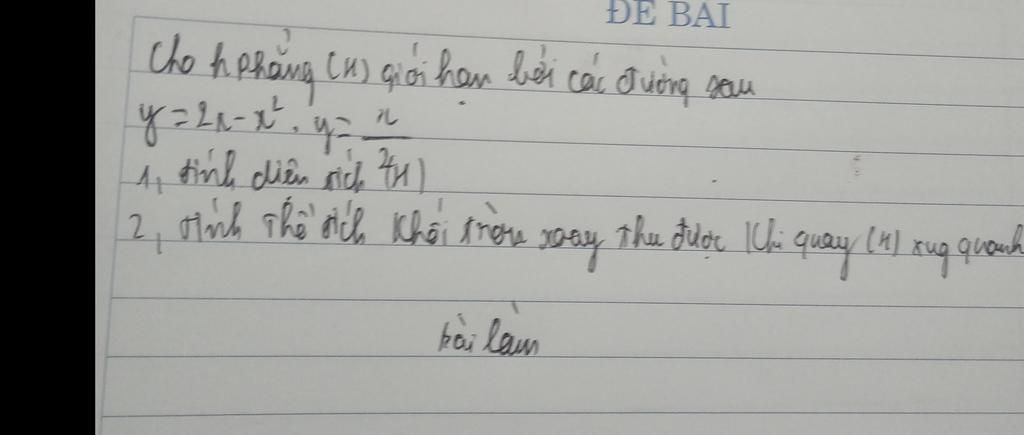 ĐỀ BÀI
Cho h phẳng (H) giới hạn bởi các đường sau
y = 2x - x², y = x/2
1, tính diện tích (H)
2, tính thể tích khối tròn xoay thu được khi quay (H) xug quanh
bài làm